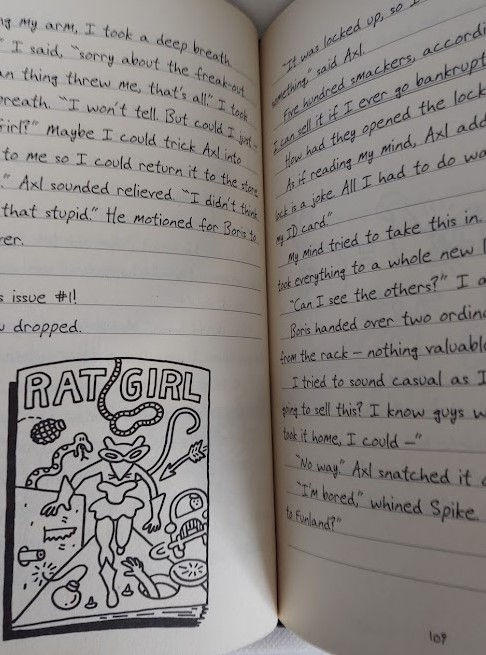 my arm, I took a deep breath.
I said, "sorry about the freak-out
thing threw me, that's all." I took
breath. "I won't tell. But could I just —
Girl?" Maybe I could trick Axl into
to me so I could return it to the store
" Axl sounded relieved. "I didn't think
that stupid." He motioned for Boris to
issue #1!
dropped.
RAT GIRL
"It was locked up, so I
something," said Axl.
Five hundred smackers, accordi
I can sell it if I ever go bankrupt
How had they opened the lock
As if reading my mind, Axl add
lock is a joke. All I had to do wa
my ID card."
My mind tried to take this in.
took everything to a whole new l
"Can I see the others?" I a
Boris handed over two ordin
from the rack – nothing valuabl
I tried to sound casual as I
going to sell this? I know guys w
took it home, I could –"
"No way." Axl snatched it
"I'm bored," whined Spike.
to Funland?"
109